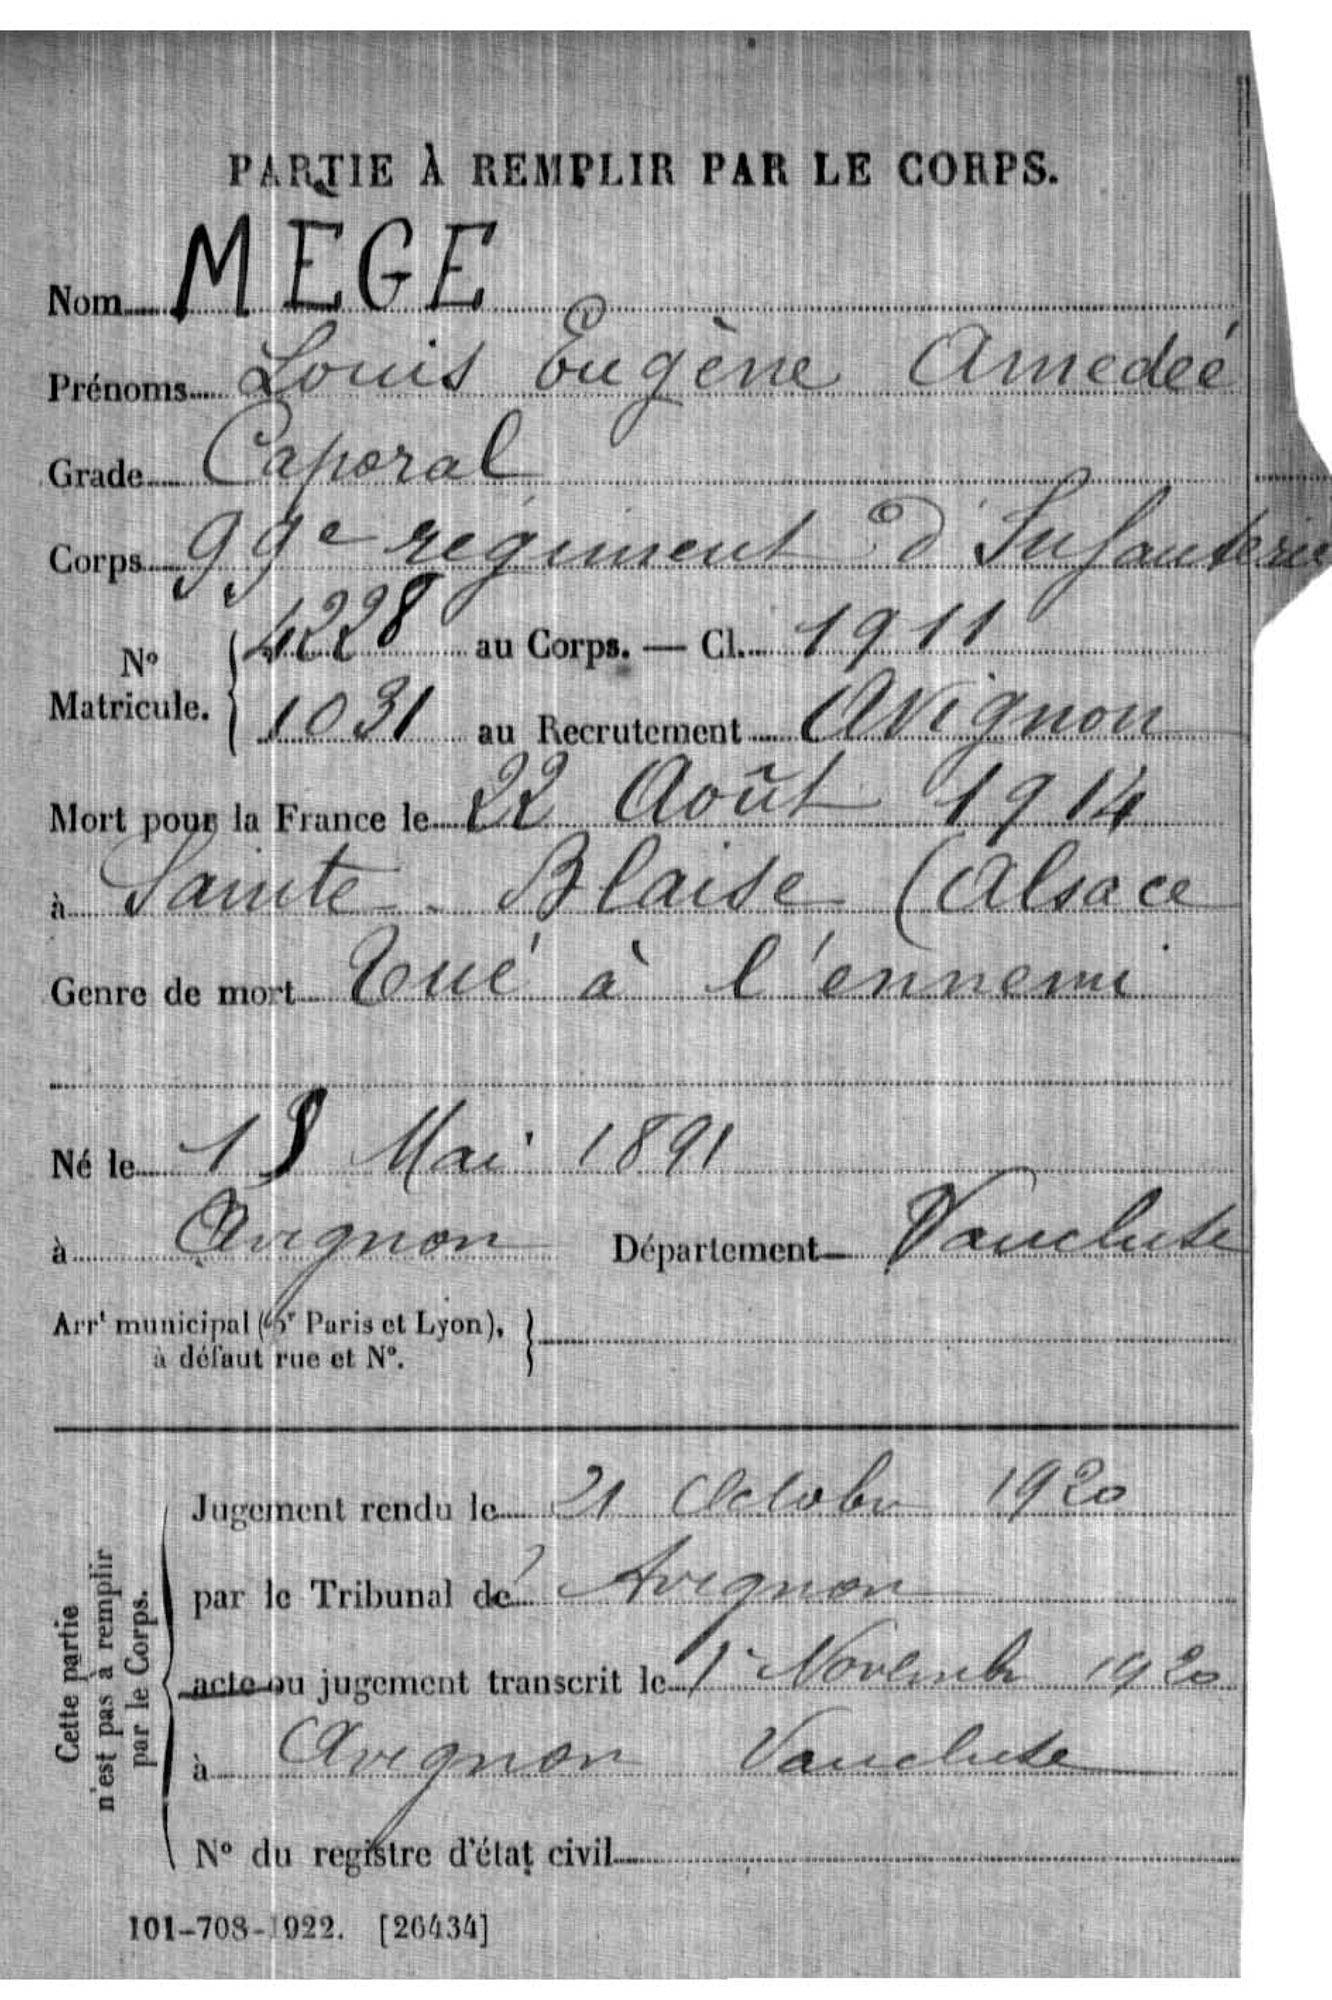 PARTIE À REMPLIR PAR LE CORPS.
Nom MEGE
Prénoms Louis Eugène Amedeé
Grade Caporal
Corps 99e régiment d'Infanterie
N° Matricule. { 4228 au Corps. — Cl. 1911
1031 au Recrutement Avignon
Mort pour la France le 22 Août 1914
à Sainte-Blaise (Alsace
Genre de mort Tué à l'ennemi
Né le Mai 1891
à Avignon Département Vaucluse
Arrt municipal (pr Paris et Lyon), }
à défaut rue et N°.
Cette partie
n'est pas à remplir
par le Corps.
Jugement rendu le 21 Octobre 1920
par le Tribunal de Avignon
acte ou jugement transcrit le 1r Novembre 1920
à Avignon Vaucluse
N° du registre d'état civil
101-708-1922. [26434]